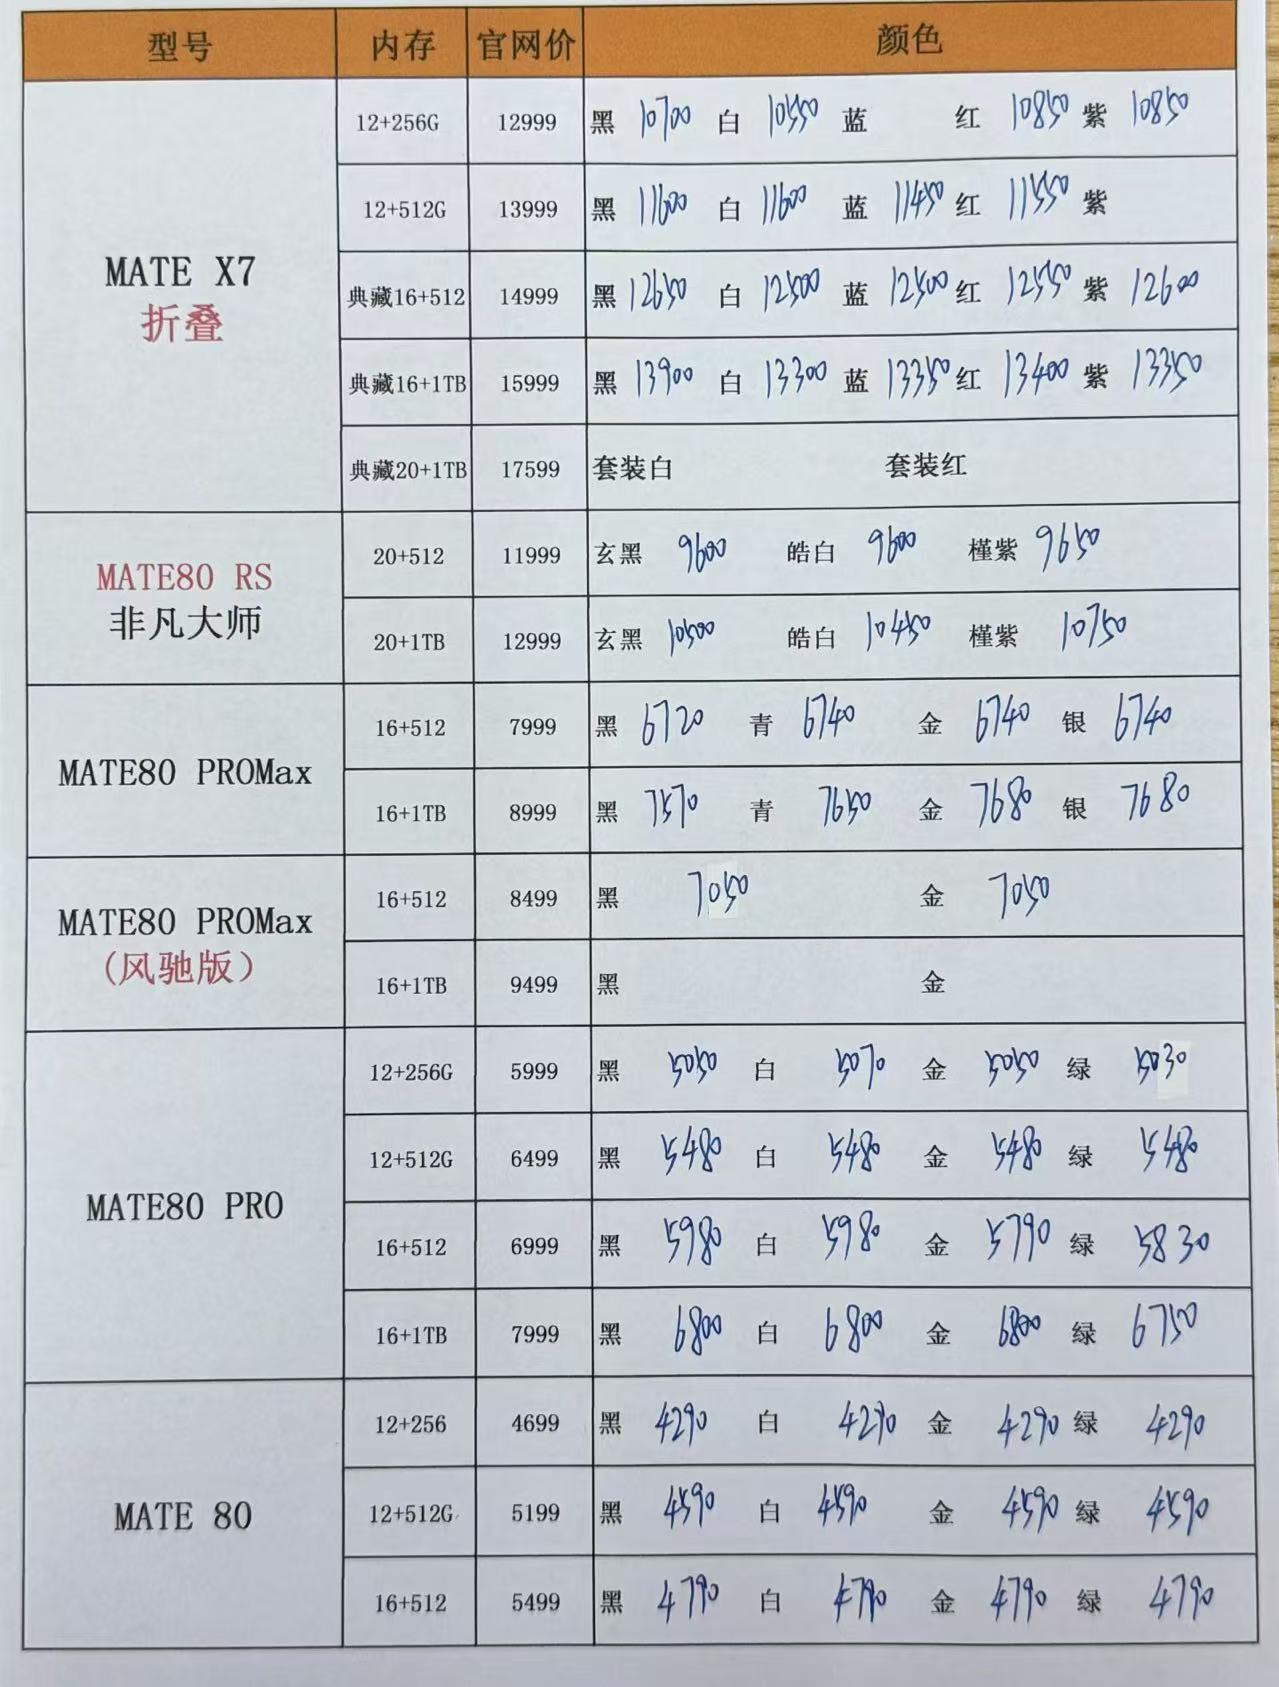 型号 内存 官网价 颜色
MATE X7
折叠
12+256G 12999 黑 10700 白 10550 蓝 红 10850 紫 10850
12+512G 13999 黑 11600 白 11600 蓝 11450 红 11550 紫
典藏16+512 14999 黑 12650 白 12500 蓝 12500 红 12550 紫 12600
典藏16+1TB 15999 黑 13900 白 13300 蓝 13350 红 13400 紫 13350
典藏20+1TB 17599 套装白 套装红
MATE80 RS
非凡大师
20+512 11999 玄黑 9600 皓白 9600 槿紫 9650
20+1TB 12999 玄黑 10500 皓白 10450 槿紫 10750
MATE80 PROMax
16+512 7999 黑 6720 青 6740 金 6740 银 6740
16+1TB 8999 黑 7570 青 7650 金 7680 银 7680
MATE80 PROMax
(风驰版)
16+512 8499 黑 7050 金 7050
16+1TB 9499 黑 金
MATE80 PRO
12+256G 5999 黑 5050 白 5070 金 5050 绿 5030
12+512G 6499 黑 5480 白 5480 金 5480 绿 5480
16+512 6999 黑 5980 白 5980 金 5790 绿 5830
16+1TB 7999 黑 6800 白 6800 金 6800 绿 6750
MATE 80
12+256 4699 黑 4290 白 4290 金 4290 绿 4290
12+512G 5199 黑 4590 白 4590 金 4590 绿 4590
16+512 5499 黑 4790 白 4790 金 4790 绿 4790